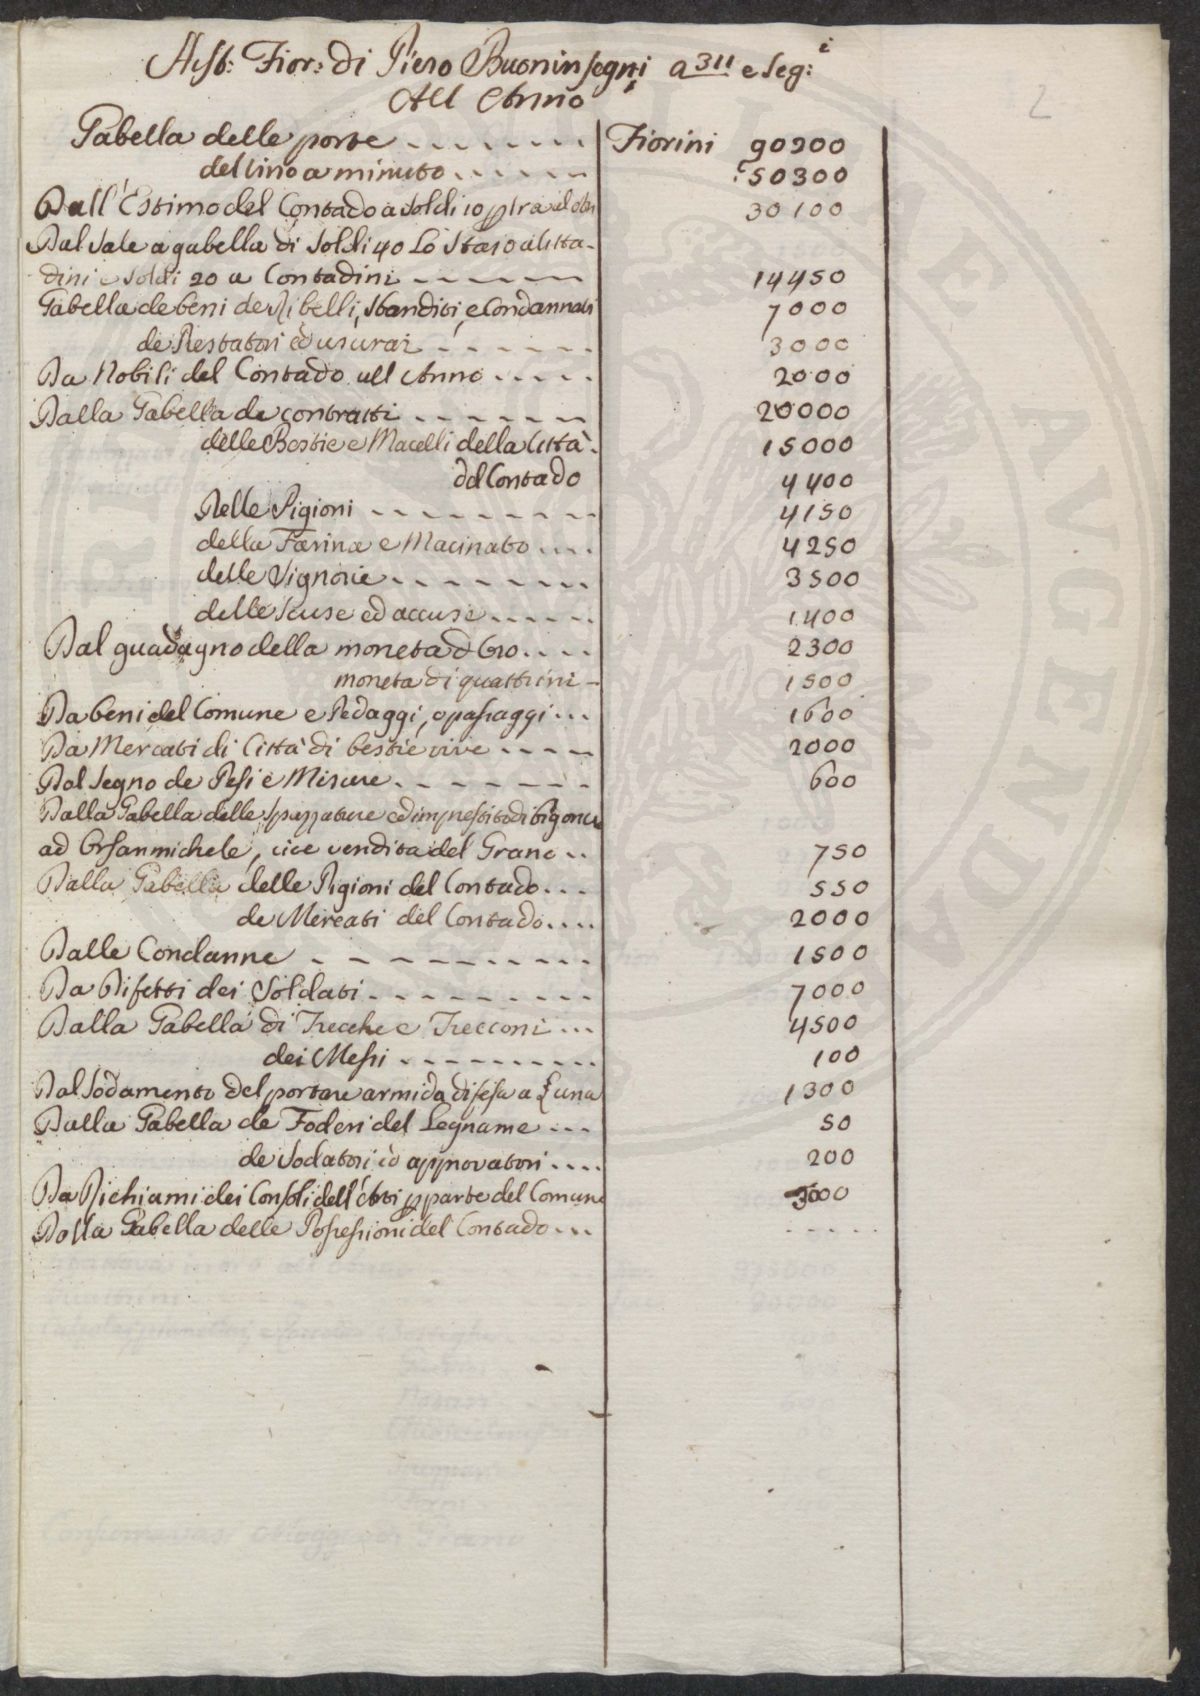 Hist: Fior: di Piero Buoninsegni a 311 e seg:i
2
All Anno
Gabella delle porte - - - - - - - Fiorini 90200
del Vino a minuto - - - - - - 50300
Dall'Estimo del Contado a soldi 10 p lra 30100
Dal Sale a gabella di soldi 40 Lo Staio a Citta-
dini e soldi 20 a Contadini - - - - - - 14450
Gabella de beni de Ribelli, sbanditi, e Condannati 7000
de Prestatori ed usurai - - - - - - - 3000
Da Nobili del Contado all Anno - - - - - 2000
Dalla Gabella de contratti - - - - - - 20000
delle Bestie e Macelli della Città - 15000
del Contado 4400
Delle Pigioni - - - - - - - - - 4150
della Farina e Macinato - - - - 4250
delle Vignorie - - - - - - - - 3500
delle scuse ed accuse - - - - - - 1400
Dal guadagno della moneta d Oro - - - - 2300
moneta di quattrini - 1500
Da beni del Comune e Pedaggi, o passaggi - - - 1600
Da Mercati di Città di bestie vive - - - - - 2000
Dal segno de Pesi e Misure - - - - - - - - 600
Dalla Gabella delle spazzature ed imprestito di bigonce
ad Orsanmichele, cioe vendita del Grano - - 750
Dalla Gabella delle Pigioni del Contado - - - 550
de Mercati del Contado - - - - 2000
Dalle Condanne - - - - - - - - - - 1500
Da Difetti dei Soldati - - - - - - - - 7000
Dalla Gabella di Trecche e Trecconi - - - 4500
dei Messi - - - - - - - - - 100
Dal Sodamento del portare armi da difesa a £ una 1300
Dalla Gabella de Foderi del Legname - - - 50
de Sodatori ed approvatori - - - - 200
Da Richiami dei Consoli dell'Arti p parte del Comune 300
Dalla Gabella delle Possessioni del Contado - - - - - - - -